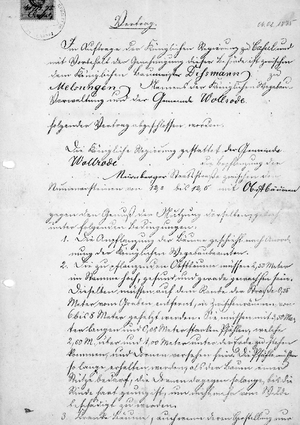 Vertrag.
Im Auftrage der Königlichen Regierung zu Cassel und
mit Vorbehalt der Genehmigung dieser Behörde ist zwischen
dem Königlichen Baumeister Dißmann zu
Melsungen Namens der Königlichen Wegebau-
Verwaltung und der Gemeinde Wollrode
folgender Vertrag abgeschlossen worden.
Die Königliche Regierung gestattet der Gemeinde
Wollrode die Bepflanzung der
Nürnberger Staatsstraße zwischen den
Nummersteinen von 12,0 bis 12,6 mit Obstbäumen
gegen den Genuß der Nutzung derselben
unter folgenden Bedingungen.
1. Die Anpflanzung der Bäume geschieht nach Anord-
nung der Königlichen Wegebaubeamten.
2. Die zu pflanzenden Obstbäume müssen 2,20 Meter
im Stamme hoch, gesund und gerade gewachsen sein.
Dieselben müssen auf dem Rande der Straße 0,25
Meter vom Graben entfernt, in Zwischenräumen von
6 bis 8 Meter gesetzt werden. Sie müssen mit 3,00 Me-
ter langen und 0,08 Meter starken Pfählen, welche
2,00 M. über und 1,00 Meter unter die Erde zu stehen
kommen, und Dornen versehen sein, die Pfähle müssen
so lange erhalten werden, als der Baum einer
Stütze bedarf, die Dornen dagegen so lange, bis die
Rinde hart genug ist, um nicht mehr vom Wilde
beschädigt zu werden.
3. Kranke Bäume, auch wenn deren Herstellung nur